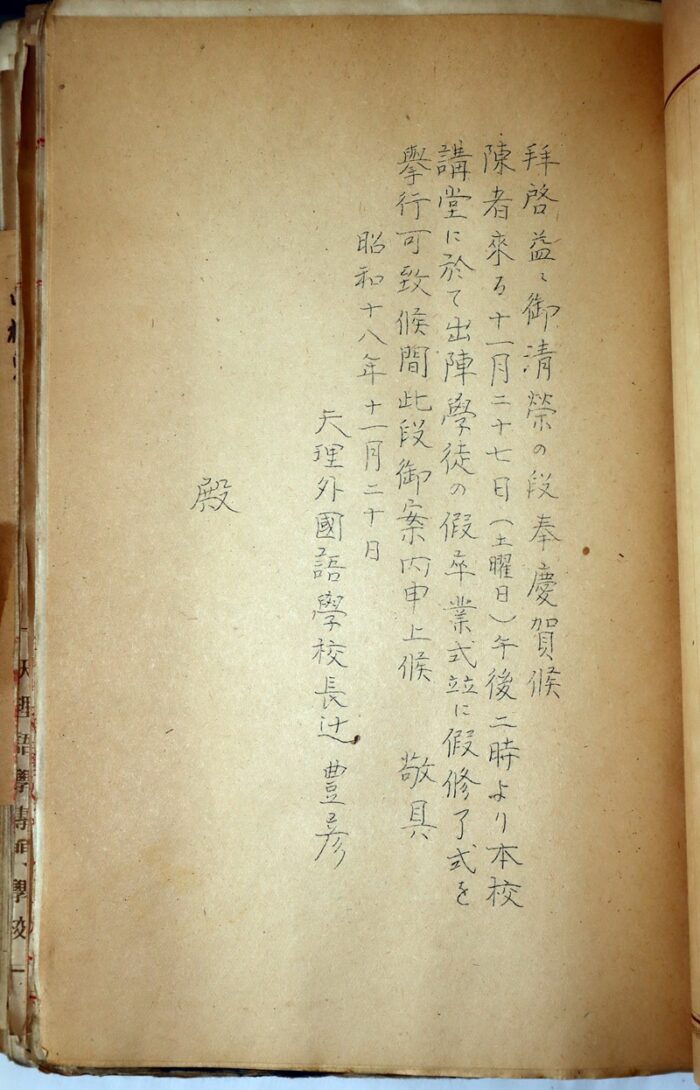 拜啓益〻御清榮の段奉慶賀候
陳者來る十一月二十七日(土曜日)午後二時より本校
講堂に於て出陣學徒の假卒業式竝に假修了式を
擧行可致候間此段御案内申上候　敬具
昭和十八年十一月二十日
天理外國語學校長辻豊彦
殿